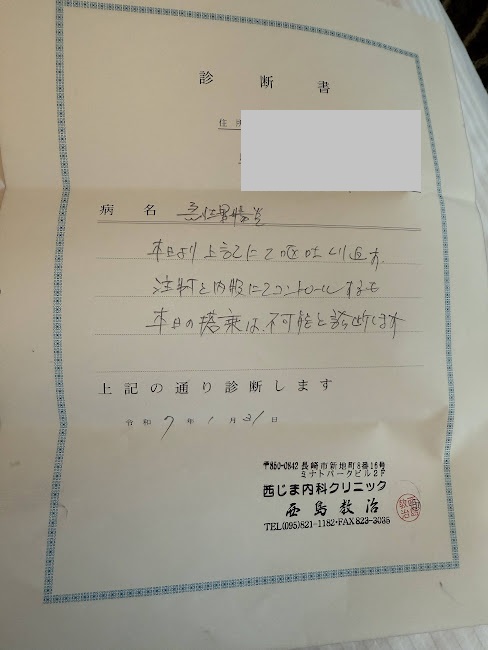 診断書
住所
病名 急性胃腸炎
本日より上記にて嘔吐くり返す。
注射と内服にてコントロールするも
本日の搭乗は、不可能と診断します
上記の通り診断します
令和 7年 1月 31日
〒850-0842 長崎市新地町8番16号
ミナトパークビル2F
西じま内科クリニック
西島教治
TEL(095)821-1182・FAX823-3035